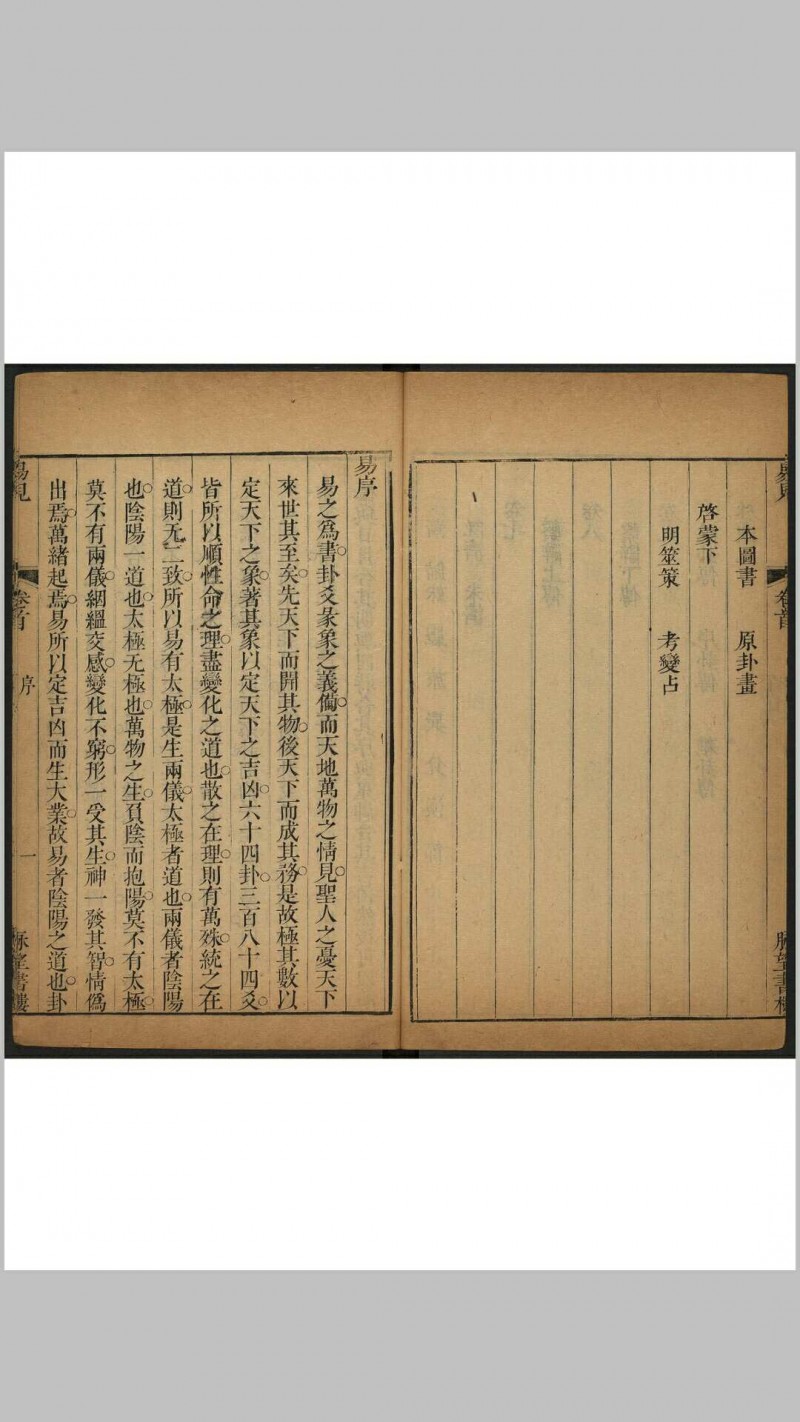 易見
卷首
脉望書樓
本圖書　原卦畫
啓蒙下
明筮策　考變占
易序
易之爲書卦爻彖象之義僃而天地萬物之情見聖人之憂天下
來世其至矣先天下而開其物後天下而成其務是故極其數以
定天下之象著其象以定天下之吉凶六十四卦三百八十四爻
皆所以順性命之理盡變化之道也散之在理則有萬殊統之在
道則无二致所以易有太極是生兩儀太極者道也兩儀者陰陽
也陰陽一道也太極无極也萬物之生負陰而抱陽莫不有太極
莫不有兩儀絪縕交感變化不窮形一受其生神一發其智情僞
出焉萬緒起焉易所以定吉凶而生大業故易者陰陽之道也卦
易見
卷首
序
一
脉望書樓